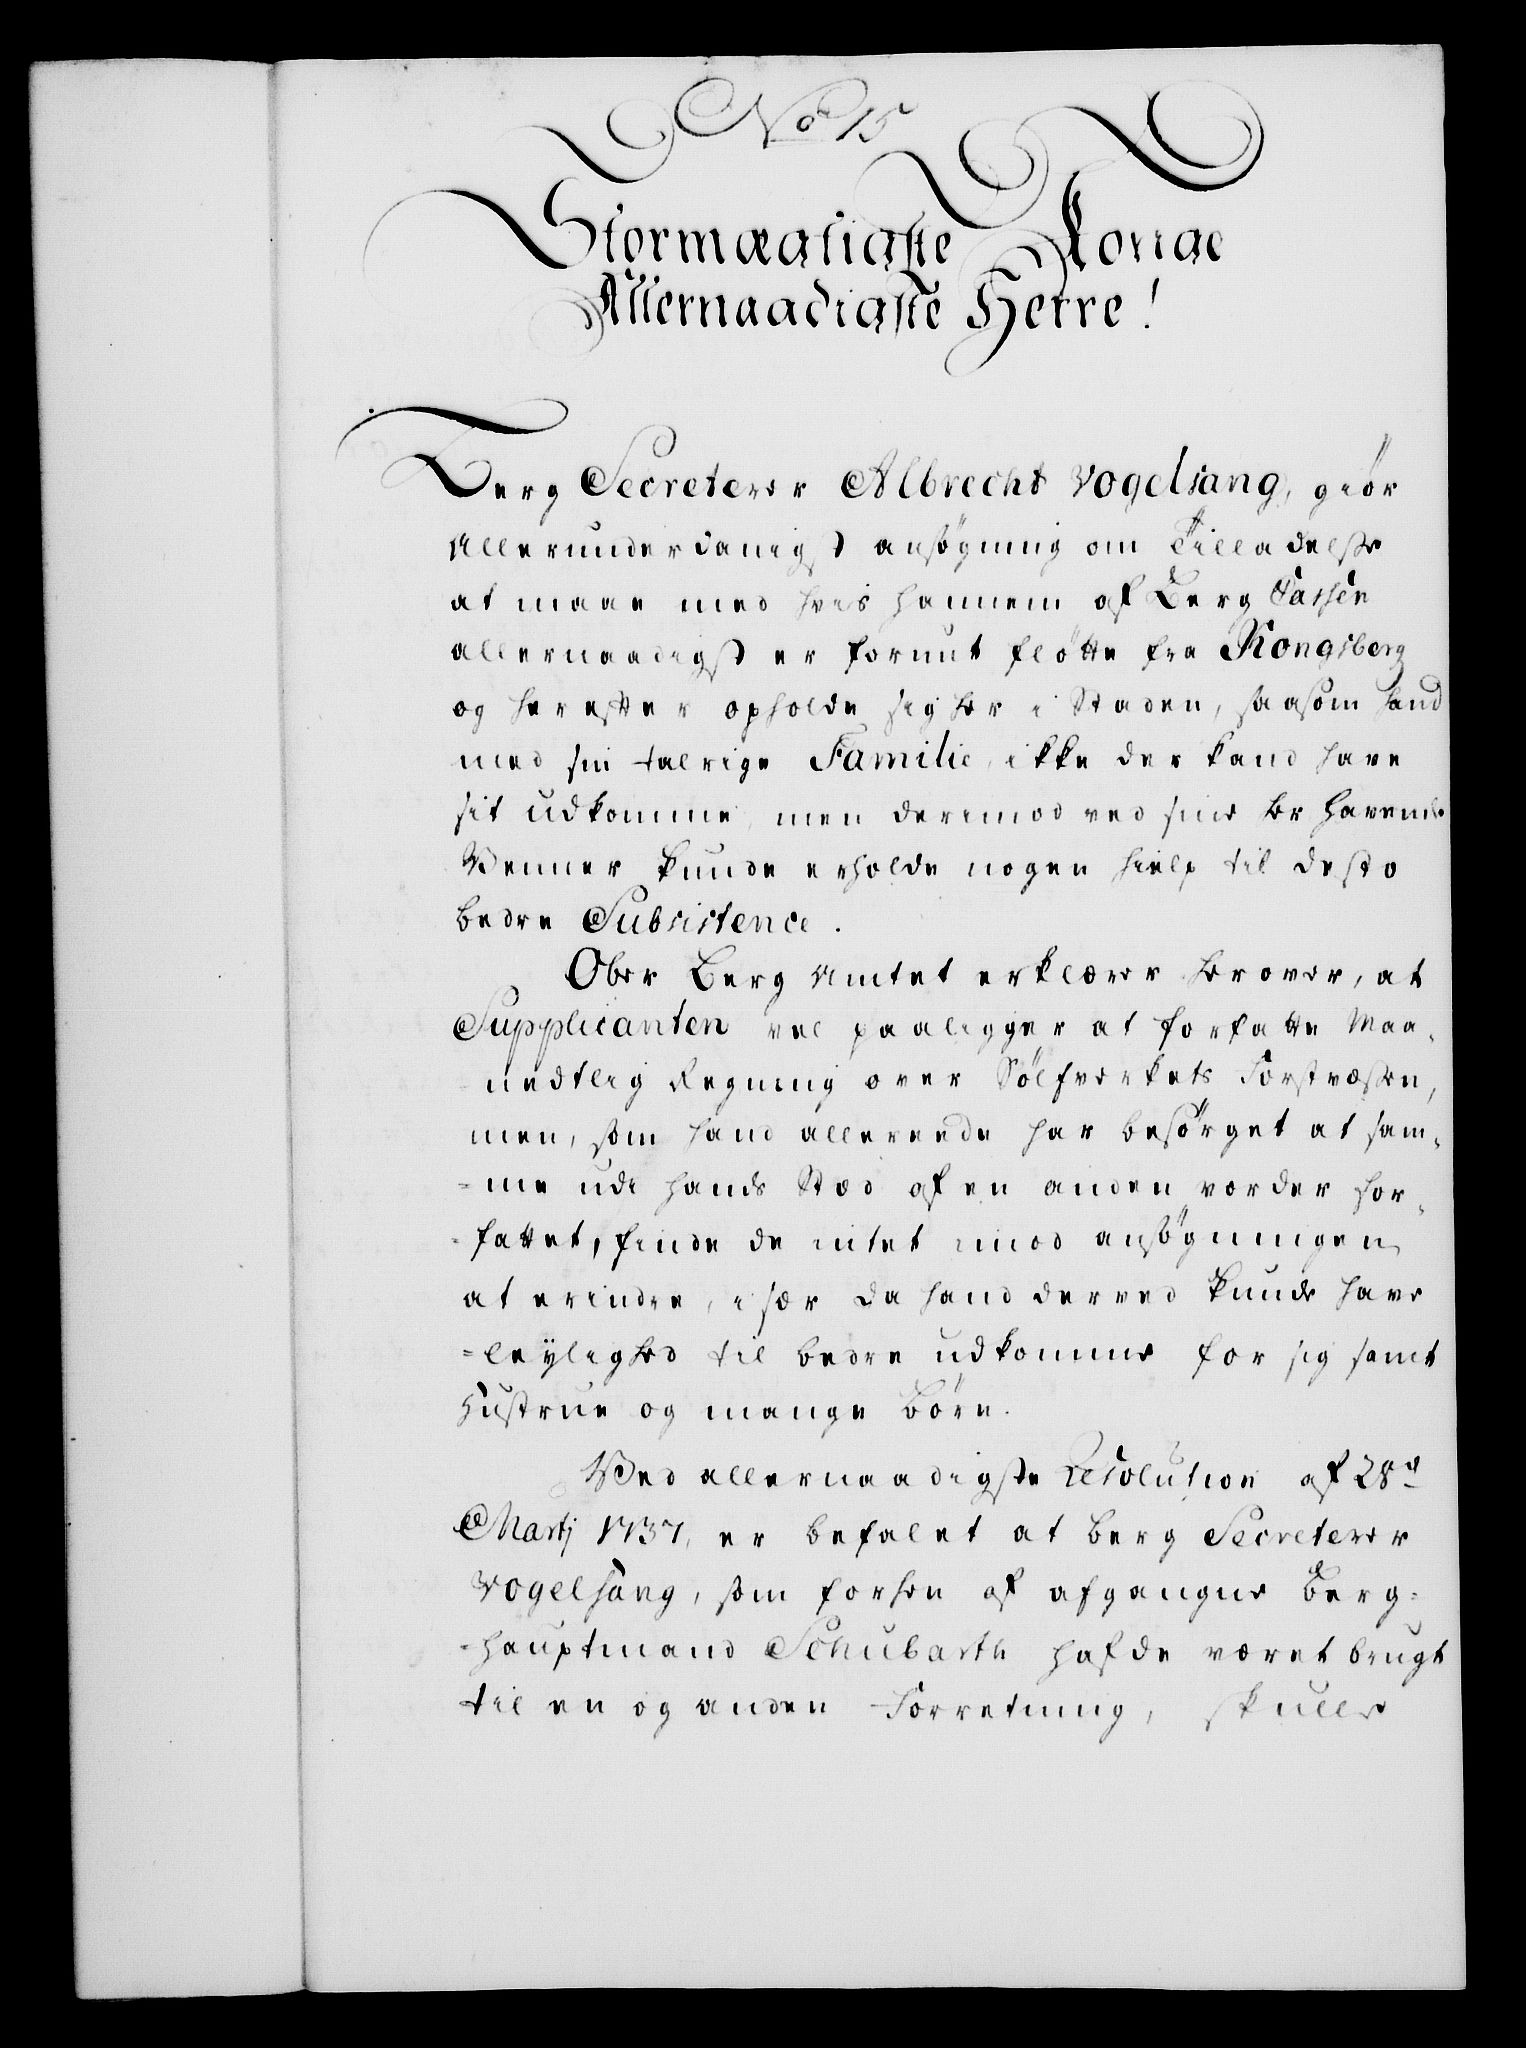 No 15
Stormægtigste Konge
Allernaadigste Herre!
Berg Secreterer Albrecht Vogelsang, giör
Allerunderdanigst ansögning om Tilladelsse
at maae med hvis hannem af Berg Cassen
allernaadigst er forunt fløtte fra Kongsberg
og herefter opholde sig her i Staden, saasom hand
med sin talrige Familie, ikke der kand have
sit udkomme, men derimod ved sine her havende
Venner kunde erholde nogen hielp til desto
bedre Subsistence.
Ober Berg Amtet erklærer herover, at
Supplicanten vel paaligger at forfatte Maa-
nedtlig Regning over Sölfverkets Forstvæssen,
men, som hand allereede har besörget at sam-
-me udi hands Stæd af en anden vorder for-
-fattet, finde de intet imod ansögningen
at erindre, i sær da hand derved kunde have
-leÿlighed til bedre udkomme for sig samt
Hustrue og mange Börn.
Ved allernaadigste Resolution af 28de
Martj 1737, er befalet at Berg Secreterer
Vogelsang, som forhen af afgangne Berg-
-hauptmand Schubarth hafde været brugt
til en og anden Forretning, skulle